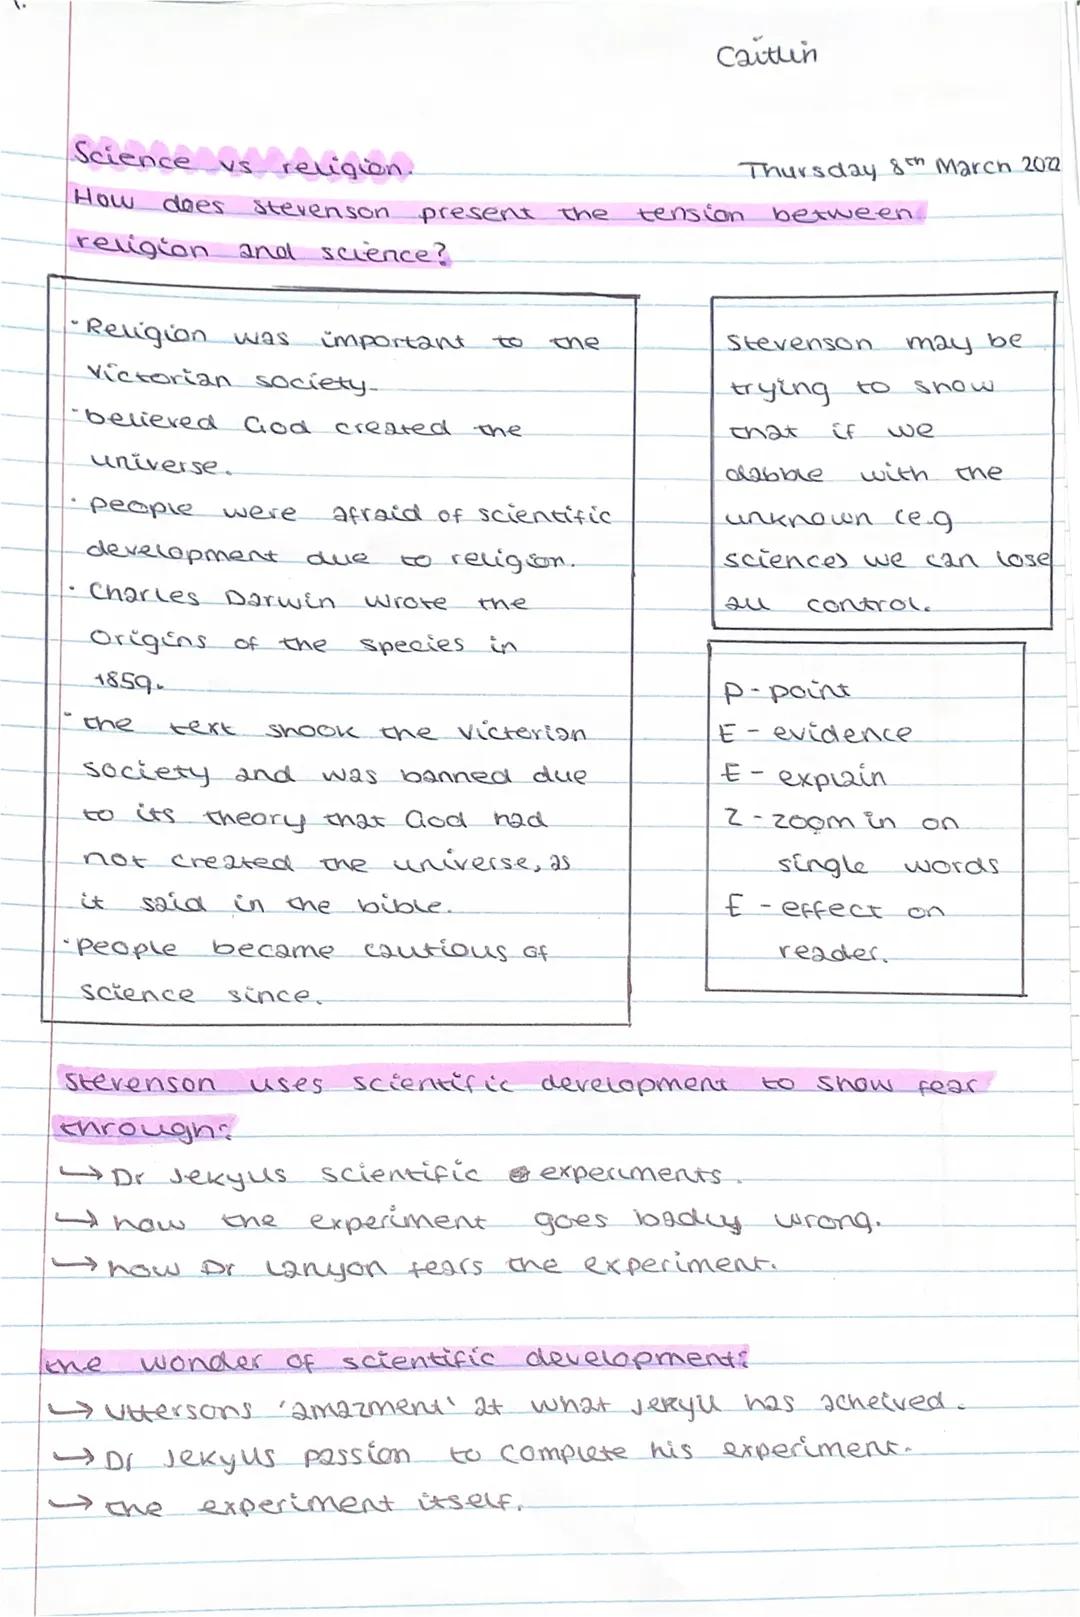 Caitlin
Science vs religion.
Thursday 8th March 2022
How does Stevenson present the tension between
religion and science?
· Religion was important to the
Victorian society.
· believed God created the
universe.
· people were afraid of scientific
development due to religion.
· Charles Darwin wrote the
Origins of the species in
1859.
· the text shook the Victorian
society and was banned due
to its theory that God had
not created the universe, as
it said in the bible.
· People became cautious of
science since.
Stevenson may be
trying to show
that if we
dabble with the
unknown (e.g
science) we can lose
all control.
P - point
E - evidence
E - explain
Z - zoom in on
single words
E - effect on
reader.
Stevenson uses scientific development to show fear
through:
↳ Dr Jekylls scientific experiments.
↳ how the experiment goes badly wrong.
↳ how Dr Lanyon fears the experiment.
the wonder of scientific development:
↳ Uttersons 'amazment' at what Jekyll has acheived.
↳ Dr Jekylls passion to complete his experiment.
↳ the experiment itself.